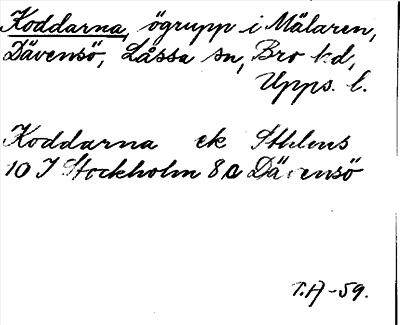 Koddarna, ögrupp i Mälaren,
Dävensö, Låssa sn, Bro hd,
Upps. l.
Koddarna ek Sthlms
10 I Stockholm 8 a Dävensö
T.A-59.